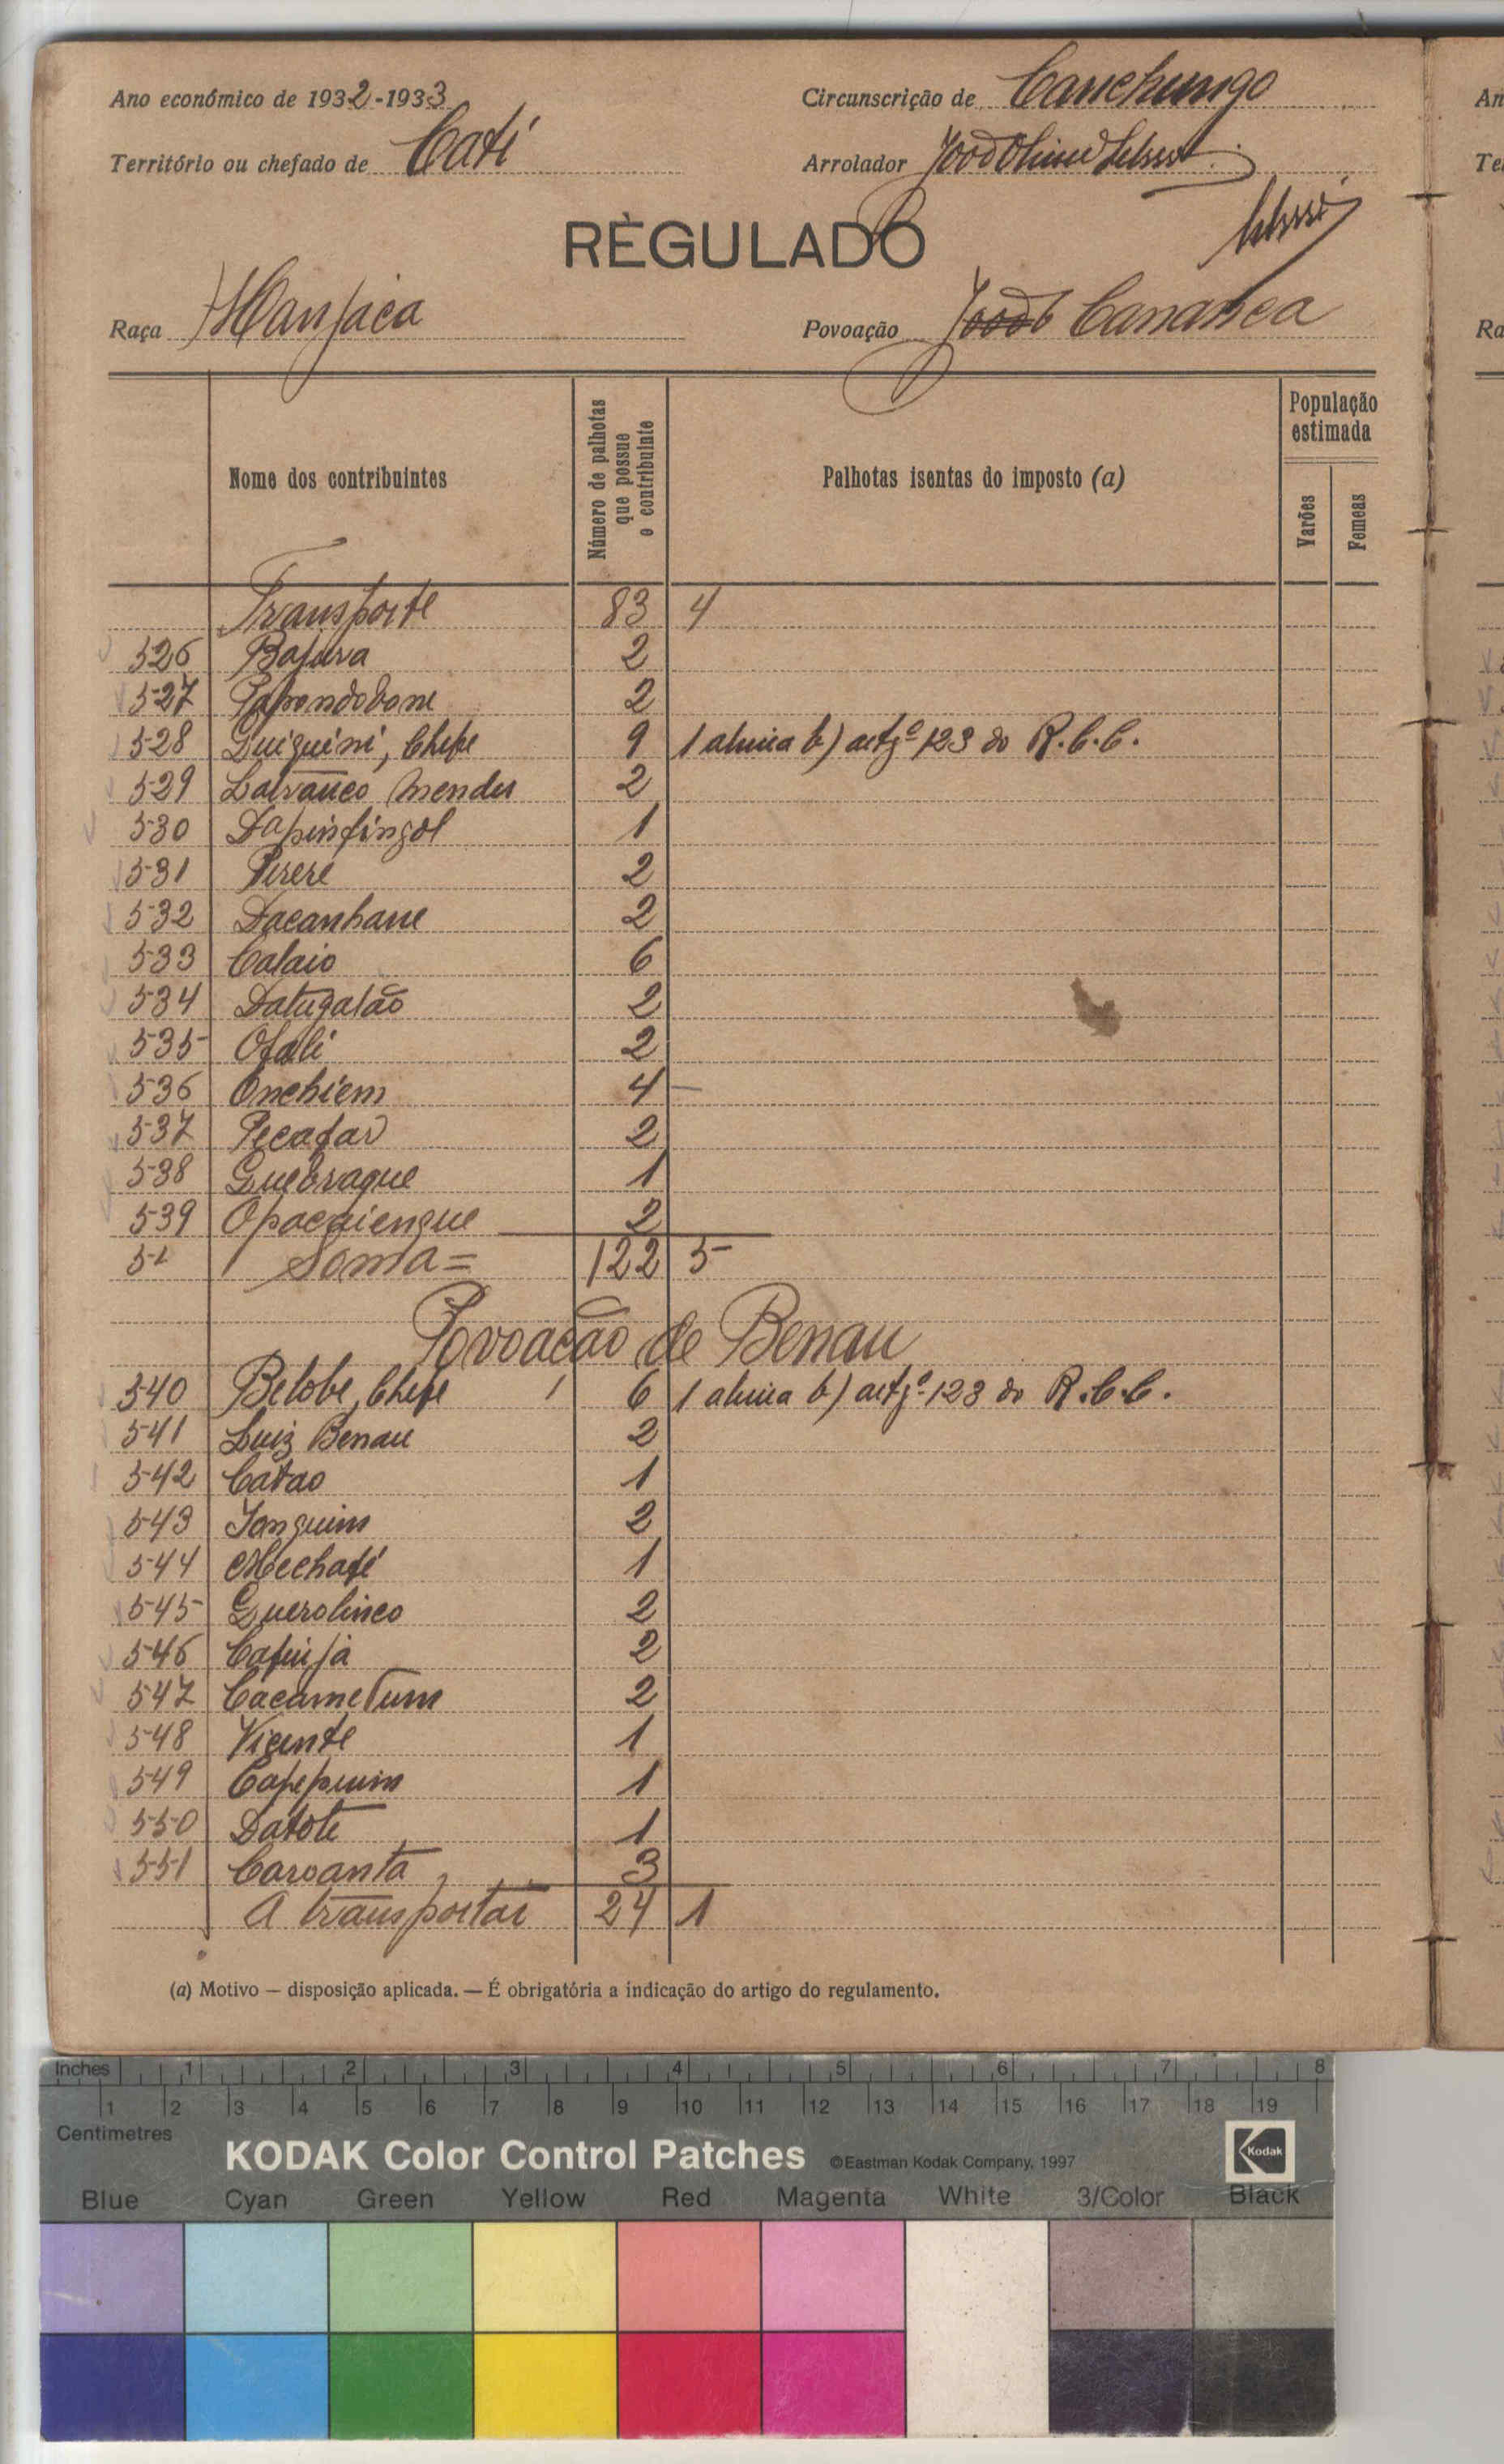 Ano económico de 1932-1933
Circunscrição de Canchungo
Território ou chefado de Cati
Arrolador João
REGULADO
Raça Manjaca
Povoação Cananca
Nome dos contribuintes
Número de palhotas que possue o contribuinte
Palhotas isentas do imposto (a)
População estimada
Varões
Femeas
Transporte 83 4
526 Bajuva 2
527 Papondobone 2
528 Guiguini, Chefe 9 1 alinea b) artgº 123 do R.C.C.
529 Lavanco Mendes 2
530 Dapinfingol 1
531 Pireré 2
532 Dacanhane 2
533 Calaio 6
534 Datugalão 2
535 Ofali 2
536 Onchiem 4 -
537 Pecafar 2
538 Guebraque 1
539 Opacaiengue 2
Soma = 122 5
Povoação de Benau
540 Belobe, Chefe 1 6 1 alinea b) artgº 123 do R.C.C.
541 Luiz Benau 2
542 Catao 1
543 Janguim 2
544 Mechafé 1
545 Querolinco 2
546 Cafinjá 2
547 Cacametum 2
548 Vicente 1
549 Capepuim 1
550 Datote 1
551 Caroanta 3
A transportar 24 1
(a) Motivo — disposição aplicada. — É obrigatória a indicação do artigo do regulamento.
Inches 1 2 3 4 5 6 7 8
1 2 3 4 5 6 7 8 9 10 11 12 13 14 15 16 17 18 19
Centimetres
KODAK Color Control Patches ©Eastman Kodak Company, 1997 Kodak
Blue Cyan Green Yellow Red Magenta White 3/Color Black